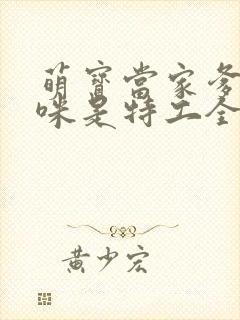 萌寶當家爹
咪是特工全
黃少宏